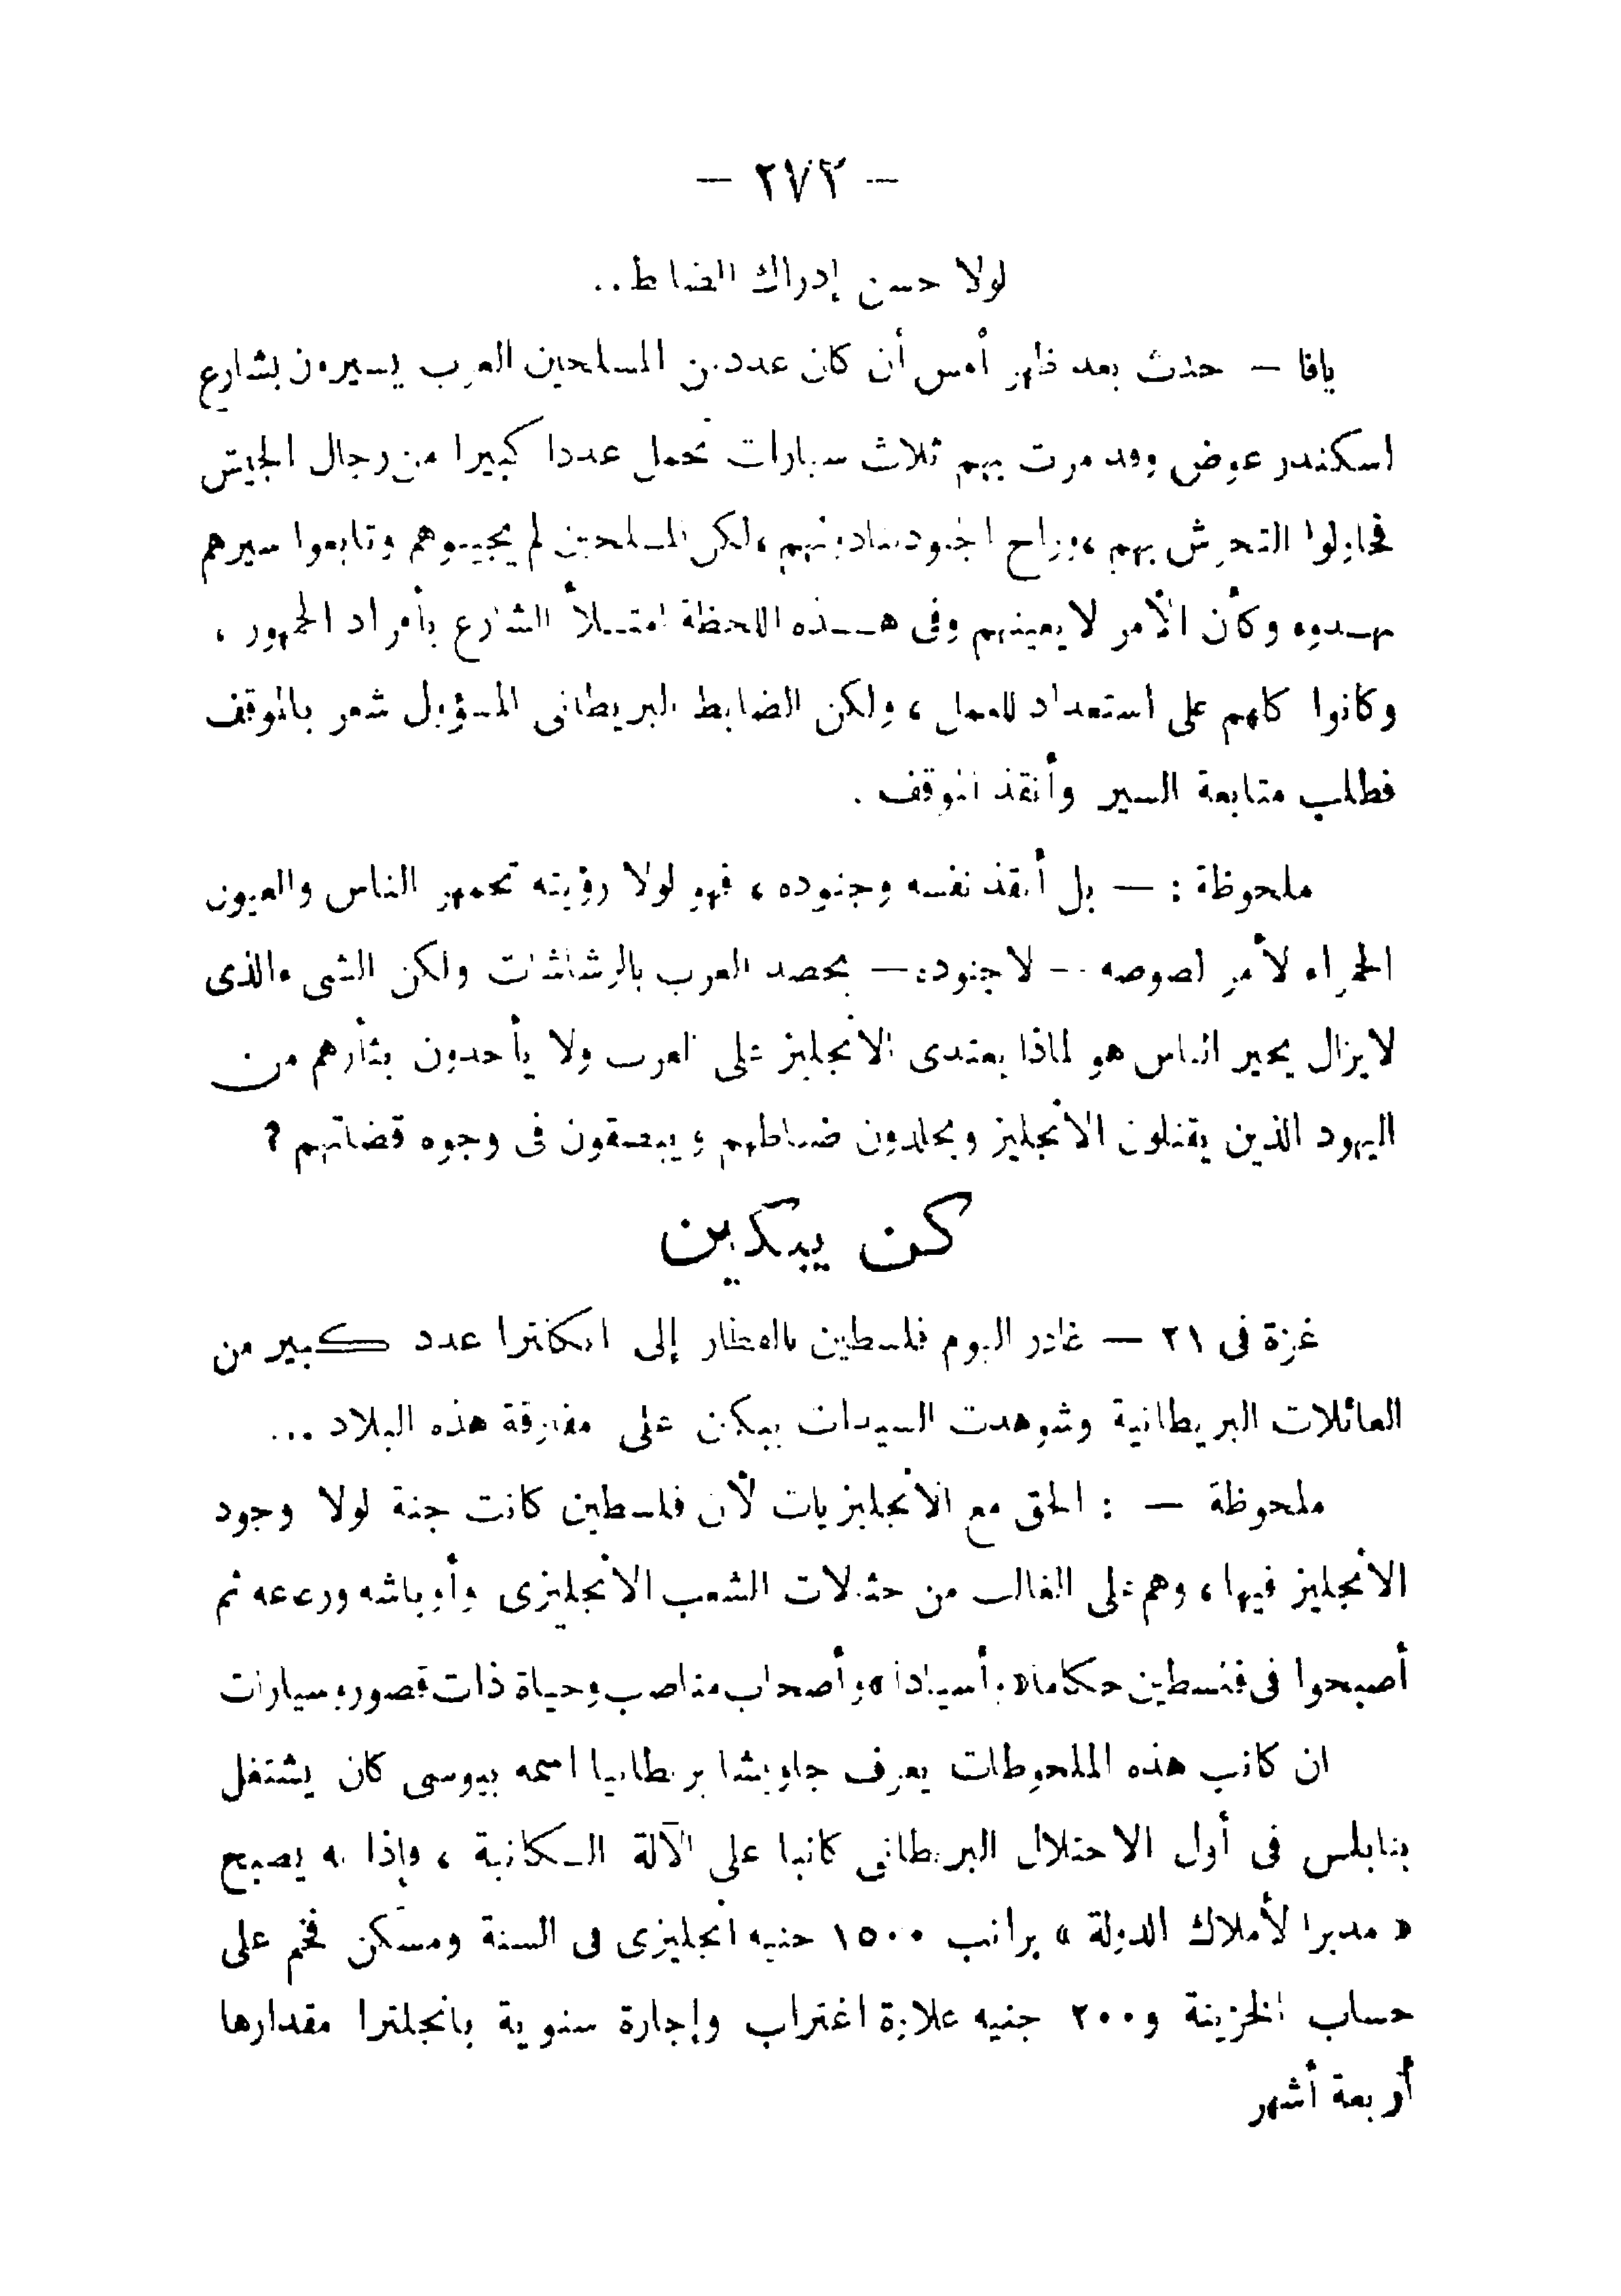 — ٢٧٢ —
لولا حسن إدراك الضابط..
يافا — حدث بعد ظهر أمس أن كان عدد من المسلحين العرب يسيرون بشارع
اسكندر عوض وقد مرت بهم ثلاث سيارات تحمل عددا كبيرا من رجال الجيش
فحاولوا التحرش بهم ، وراح الجنود ينادونهم ، لكن المسلحين لم يجيبوهم وتابعوا سيرهم
بهدوء وكأن الأمر لا يعنيهم وفى هذه اللحظة امتلأ الشارع بأفراد الجمهور ،
وكانوا كلهم على استعداد للعمل ، ولكن الضابط البريطانى المسؤول شعر بالموقف
فطلب متابعة السير وأنقذ الموقف .
ملحوظة : — بل أنقذ نفسه وجنوده ، فهو لولا رؤيته تجمهر الناس والعيون
الحمراء لأمر لصوصه — لا جنوده — بحصد العرب بالرشاشات ولكن الشىء الذى
لا يزال يحير الناس هو لماذا يعتدى الانجليز على العرب ولا يأخذون بثأرهم من
اليهود الذين يقتلون الانجليز ويجلدون ضباطهم ويبصقون فى وجوه قضاتهم ؟
كن يبكين
غزة فى ٢١ — غادر اليوم فلسطين بالقطار إلى انكلترا عدد كبير من
العائلات البريطانية وشوهدت السيدات يبكن على مفارقة هذه البلاد ...
ملحوظة — : الحق مع الانجليزيات لأن فلسطين كانت جنة لولا وجود
الانجليز فيها ، وهم على الغالب من حثالات الشعب الانجليزى وأوباشه ورعاعه ثم
أصبحوا فى فلسطين حكاما « وأسيادا » وأصحاب مناصب وحياة ذات قصور وسيارات
ان كاتب هذه الملحوظات يعرف جاويشا بريطانيا اسمه بيوسى كان يشتغل
بنابلس فى أول الاحتلال البريطانى كاتبا على الآلة الكاتبة ، وإذا به يصبح
« مديرا لأملاك الدولة » براتب ١٥٠٠ جنيه انجليزى فى السنة ومسكن فخم على
حساب الخزينة و ٢٠٠ جنيه علاوة اغتراب وإجازة سنوية بانجلترا مقدارها
أربعة أشهر